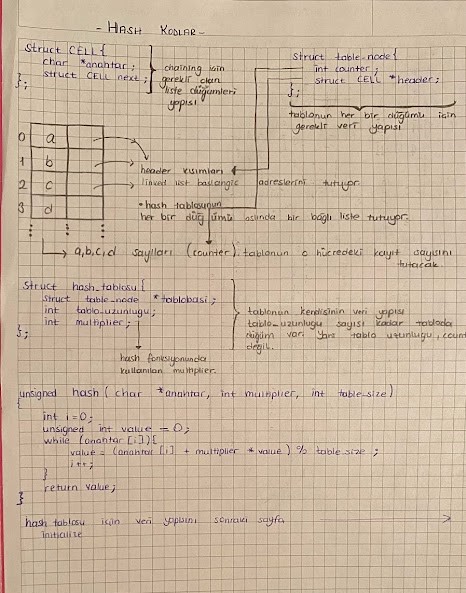 - HASH KODLAR -
struct CELL{
char *anahtar;
struct CELL next;
};
chaining için
gerekli olan
liste düğümleri
yapısı
struct table-node{
int counter;
struct CELL *header;
};
tablonun her bir düğümü için
gerekli veri yapısı
0 a
1 b
2 c
3 d
header kısımları
linked list başlangıç adreslerini tutuyor.
*hash tablosunun
her bir düğümü aslında bir bağlı liste tutuyor.
a,b,c,d sayıları (counter). tablonun o hücredeki kayıt sayısını
tutacak.
struct hash_tablosu {
struct table-node *tablobasi;
int tablo_uzunlugu;
int multiplier;
};
hash fonksiyonunda
kullanılan multiplier.
tablonun kendisinin veri yapısı
tablo_uzunlugu sayısı kadar tabloda
düğüm var. Yani tablo uzunluğu, count
değil.
unsigned hash( char *anahtar, int multiplier, int table-size)
{
int i=0;
unsigned int value =0;
while (anahtar [i]){
value = (anahtar [i] + multiplier * value ) % table_size ;
i++;
}
return value;
}
hash tablosu için veri yapısını sonraki sayfa
initialize